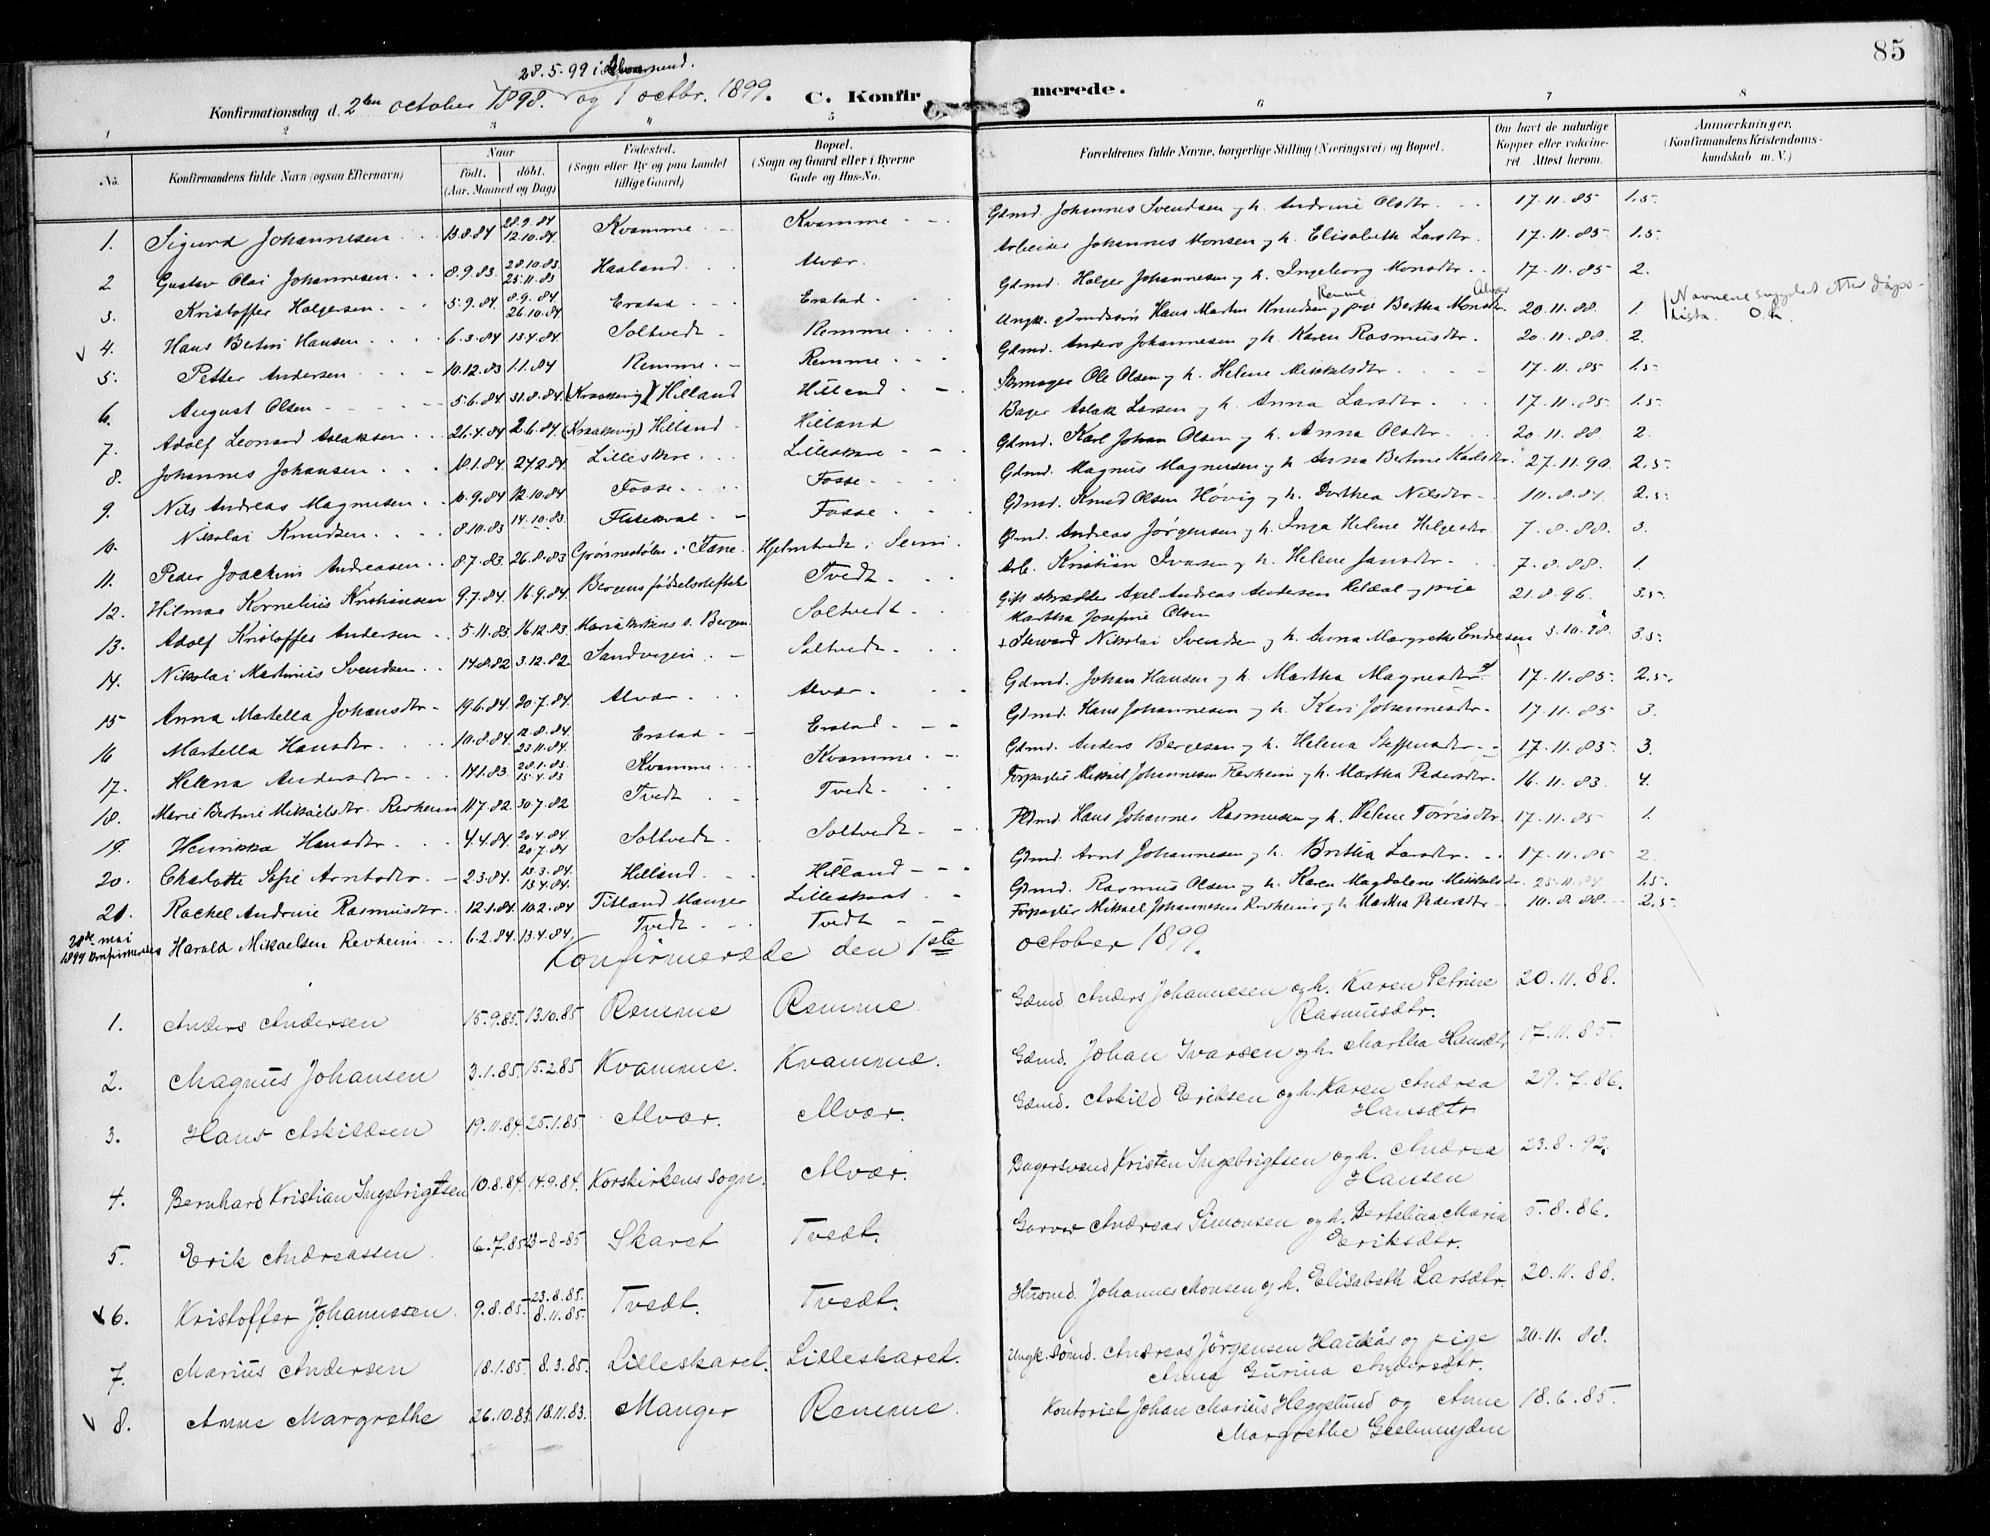 85
28.5.99 i
Konfirmationsdag d. 2den october 1898. og 1 octbr. 1899. C. Konfirmerede.
1 2 3 4 5 6 7 8
No. Konfirmandens fulde Navn (ogsaa Efternavn) Naar født. døbt. (Aar, Maaned og Dag) Fødested. (Sogn eller By og paa Landet tillige Gaard) Bopæl. (Sogn og Gaard eller i Byerne Gade og Hus-No. Forældrenes fulde Navne, borgerlige Stilling (Næringsvei) og Bopæl. Om havt de naturlige Kopper eller vakcineret. Attest herom. Anmærkninger. (Konfirmandens Kristendomskundskab m. V.)
1. Sigurd Johannesen 13.8.84 28.9.84 12.10.84 Kvamme Kvamme Gdmd. Johannes Svendsen og h. Andrine Olsdtr. 17.11.85 1.5
2 Gustav Olai Johannesen 8.9.83 28.10.83 25.11.83 Haaland Alvær Arbeider Johannes Monsen og h. Elisabeth Larsdtr. 17.11.85 1.5
3. Kristoffer Holgersen 5.9.84 8.9.84 26.10.84 Erstad Erstad Gdmd. Holger Johannesen og h. Ingeborg Monsdtr. 17.11.85 2.
4. Hans Bertin Hansen 6.3.84 13.4.84 Soltvedt Remme Ungk. gdmdssøn Hans Martin Knudsen Remme og pige Bertha Monsdtr. Alvær 20.11.88 1. Navnene
5. Petter Andersen 10.12.83 1.1.84 Remme Remme Gdmd. Anders Johannesen og h. Karen Rasmusdtr. 20.11.88 2.
6. August Olsen 5.6.84 31.8.84 (Kraakevig) Hilland Hilland Skomager Ole Olsen og h. Helene Mikkelsdtr. 17.11.85 1.5
7. Adolf Leonard Aslaksen 26.4.84 2.6.84 (Kraakevig) Hilland Hilland Bager Aslak Larsen og h. Anna Larsdtr. 17.11.85 1.5
8. Johannes Johansen 18.1.84 24.2.84 Lilleskare Lilleskare Gdmd. Karl Johan Olsen og h. Anna Olsdtr. 20.11.88 2.
9. Nils Andreas Magnesen 10.9.84 12.10.84 Fosse Fosse Gdmd. Magnus Magnusen og h Anna Bertine Karlsdtr. 27.11.90 2.5
10. Nikolai Knudsen 8.10.83 14.10.83 Fosse Gdmd. Knud Olsen Høvig og h. Dorthea Nilsdtr. 10.8.84 2.5
11. Peder Joachim Andreasen 8.7.83 26.8.83 Grønnestølen i Fane Hjelmtvedt i Seim Gdmd. Andreas Jørgensen og h. Inga Helene Helgesdtr. 7.8.88 3.
12. Hilmar Kornelius Kristiansen 9.7.84 16.9.84 Bergens fødselsstiftelse Tvedt Arb. Kristian Ivarsen og h. Helene Jansdtr. 7.8.88 1.
13. Adolf Kristoffer Andersen 5.11.83 16.12.83 Mariakirkens s. Bergen Soltvedt Gift skrædder Axel Andreas Andersen og pige Martha Josefine Olsen 21.8.96 3.5
14. Nikolai Martinus Svendsen 14.8.82 3.12.82 Sandvigen Soltvedt + Steward Nikolai Svendsen og h. Anna Margrethe Endresen 3.10.98 3.5
15 Anna Martella Johansdtr. 19.6.84 20.7.84 Alvær Alvær Gdmd. Johan Hansen og h. Martha Magnesdtr 17.11.85 2.5
16 Martella Hansdtr. 10.8.84 12.8.84 23.11.84 Erstad Erstad Gdmd. Hans Johannesen og h. Kari Johannesdtr. 17.11.85 3.
17. Helena Andersdtr. 14.1.83 28.1.83 15.4.83 Kvamme Kvamme Gdmd. Anders Bergesen og h. Helena Steffensdtr. 17.11.85 3.
18. Marie Bertine Mikaelsdtr. Revheim 11.7.82 30.7.82 Tvedt Tvedt Forpagter Mikael Johannesen Revheim og h. Martha Pedersdtr. 16.11.83 4.
19. Henrikka Hansdtr. 4.4.84 20.4.84 20.7.84 Soltvedt Soltvedt Hans Johannes Rasmusen og h. Helene Torrisdtr. 17.11.85 1.
20. Charlotte Sofie Arntsdtr. 2.3.84 13.3.84 13.4.84 Hilland Hilland Gdmd. Arnt Johannesen og h. Britha Larsdtr. 17.11.85 2
21. Rachel Andrine Rasmusdtr. 12.1.84 10.2.84 Titland Manger Lilleskaret Gdmd. Rasmus Olsen og h. Karen Magdalene Mikkelsdtr 25.11.84 1.5
28de mai 1899 konfirmeredes Harald Mikaelsen Revheim 6.2.84 13.4.84 Tvedt Tvedt Forpagter Mikael Johannesen Revheim og h Martha Pedersdtr 10.8.88 2.5
Konfirmerede den 1ste october 1899.
1. Anders Andersen 15.9.85. 13.10.85 Remme Remme Gdmd. Anders Johannesen og h. Karen Petrine Rasmusdtr. 20.11.88.
2. Magnus Johansen 3.1.85. 15.2.85 Kvamme. Kvamme. Gdmd. Johan Ivarsen og h. Martha Hansdtr 17.11.85
3. Hans Askildsen 19.11.84. 25.1.85 Alvær. Alvær. Gdmd. Askild Eriksen og h. Karen Andrea Hansdtr. 29.7.86.
4. Bernhard Kristian Ingebrigtsen 10.8.84. 14.9.84. Korskirkens sogn. Alvær. Bagersvend Kristen Ingebrigtsen og h. Andrea Hansen 23.8.92.
5. Erik Andreassen 6.7.85 23-8-85 Skaret Tvedt. Garver Andreas Simonsen og h. Bertelina Maria Eriksdtr. 5.8.86.
6. Kristoffer Johannesen 9.8.85. 23.8.85. 8.11.85. Tvedt. Tvedt. Husmd. Johannes Monsen og h. Elisabeth Larsdtr. 20.11.88.
7. Marius Andersen 18.1.85. 8.3.85. Lilleskaret. Lilleskaret. Ungk. Andreas Jørgensen Haukås og pige Anna Gurina Andersdtr. 20.11.88.
8. Anne Margrethe 26.10.83. 18.11.83. Manger Remme. Kontorist Johan Marius Heggelund og Anne Margrethe Geelmuyden 18.6.85.